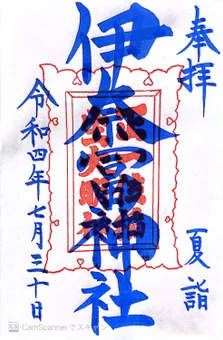 奉拝
伊奈冨神社
夏詣
令和四年七月三十日
CamScannerでスキャン